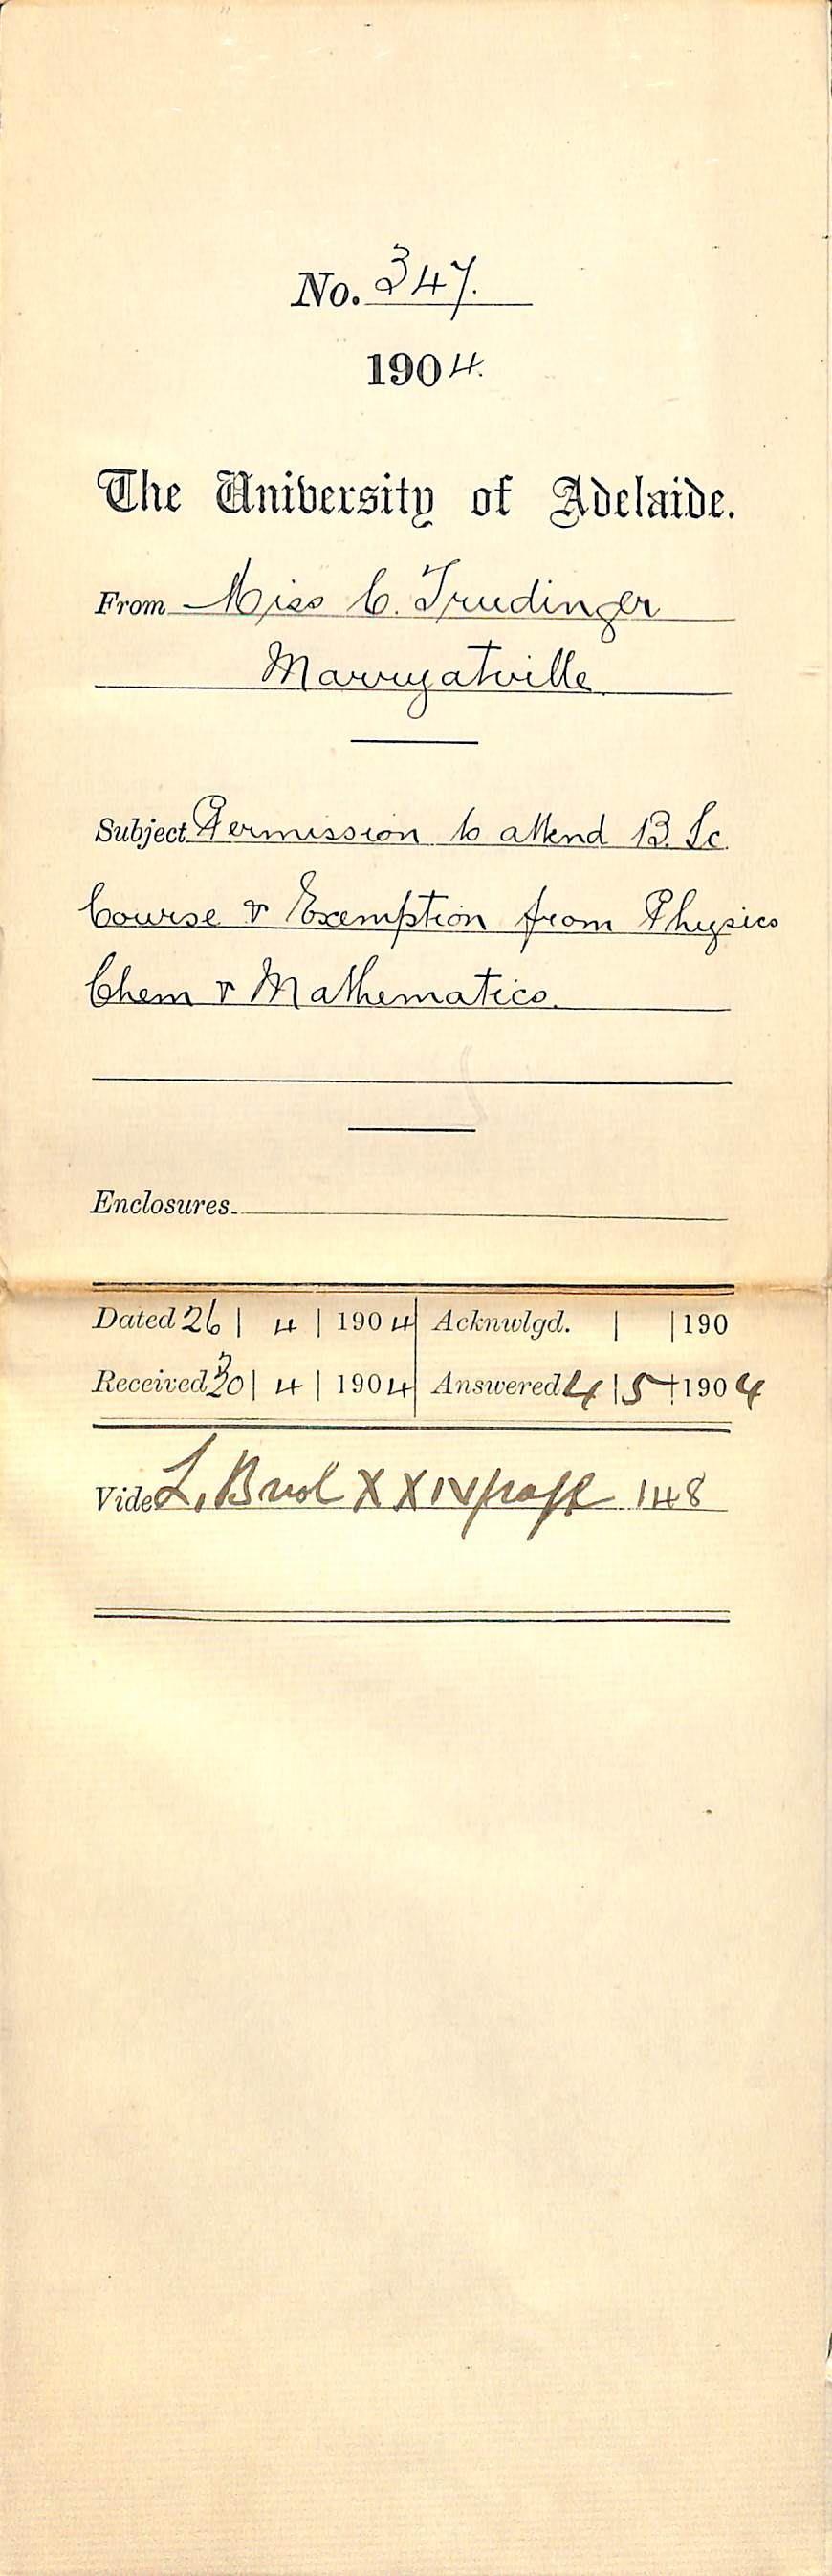 No. 347.
1904.
The University of Adelaide.
From Miss C. Trudinger
Marryatville
Subject Permission to attend B. Sc.
Course & Exemption from Physics
Chem & Mathematics.
Enclosures.
Dated 26 | 4 | 1904 Acknwlgd. | | 190
Received 30 | 4 | 1904 Answered 4 | 5 | 1904
Vide L. B vol XXIV page 148